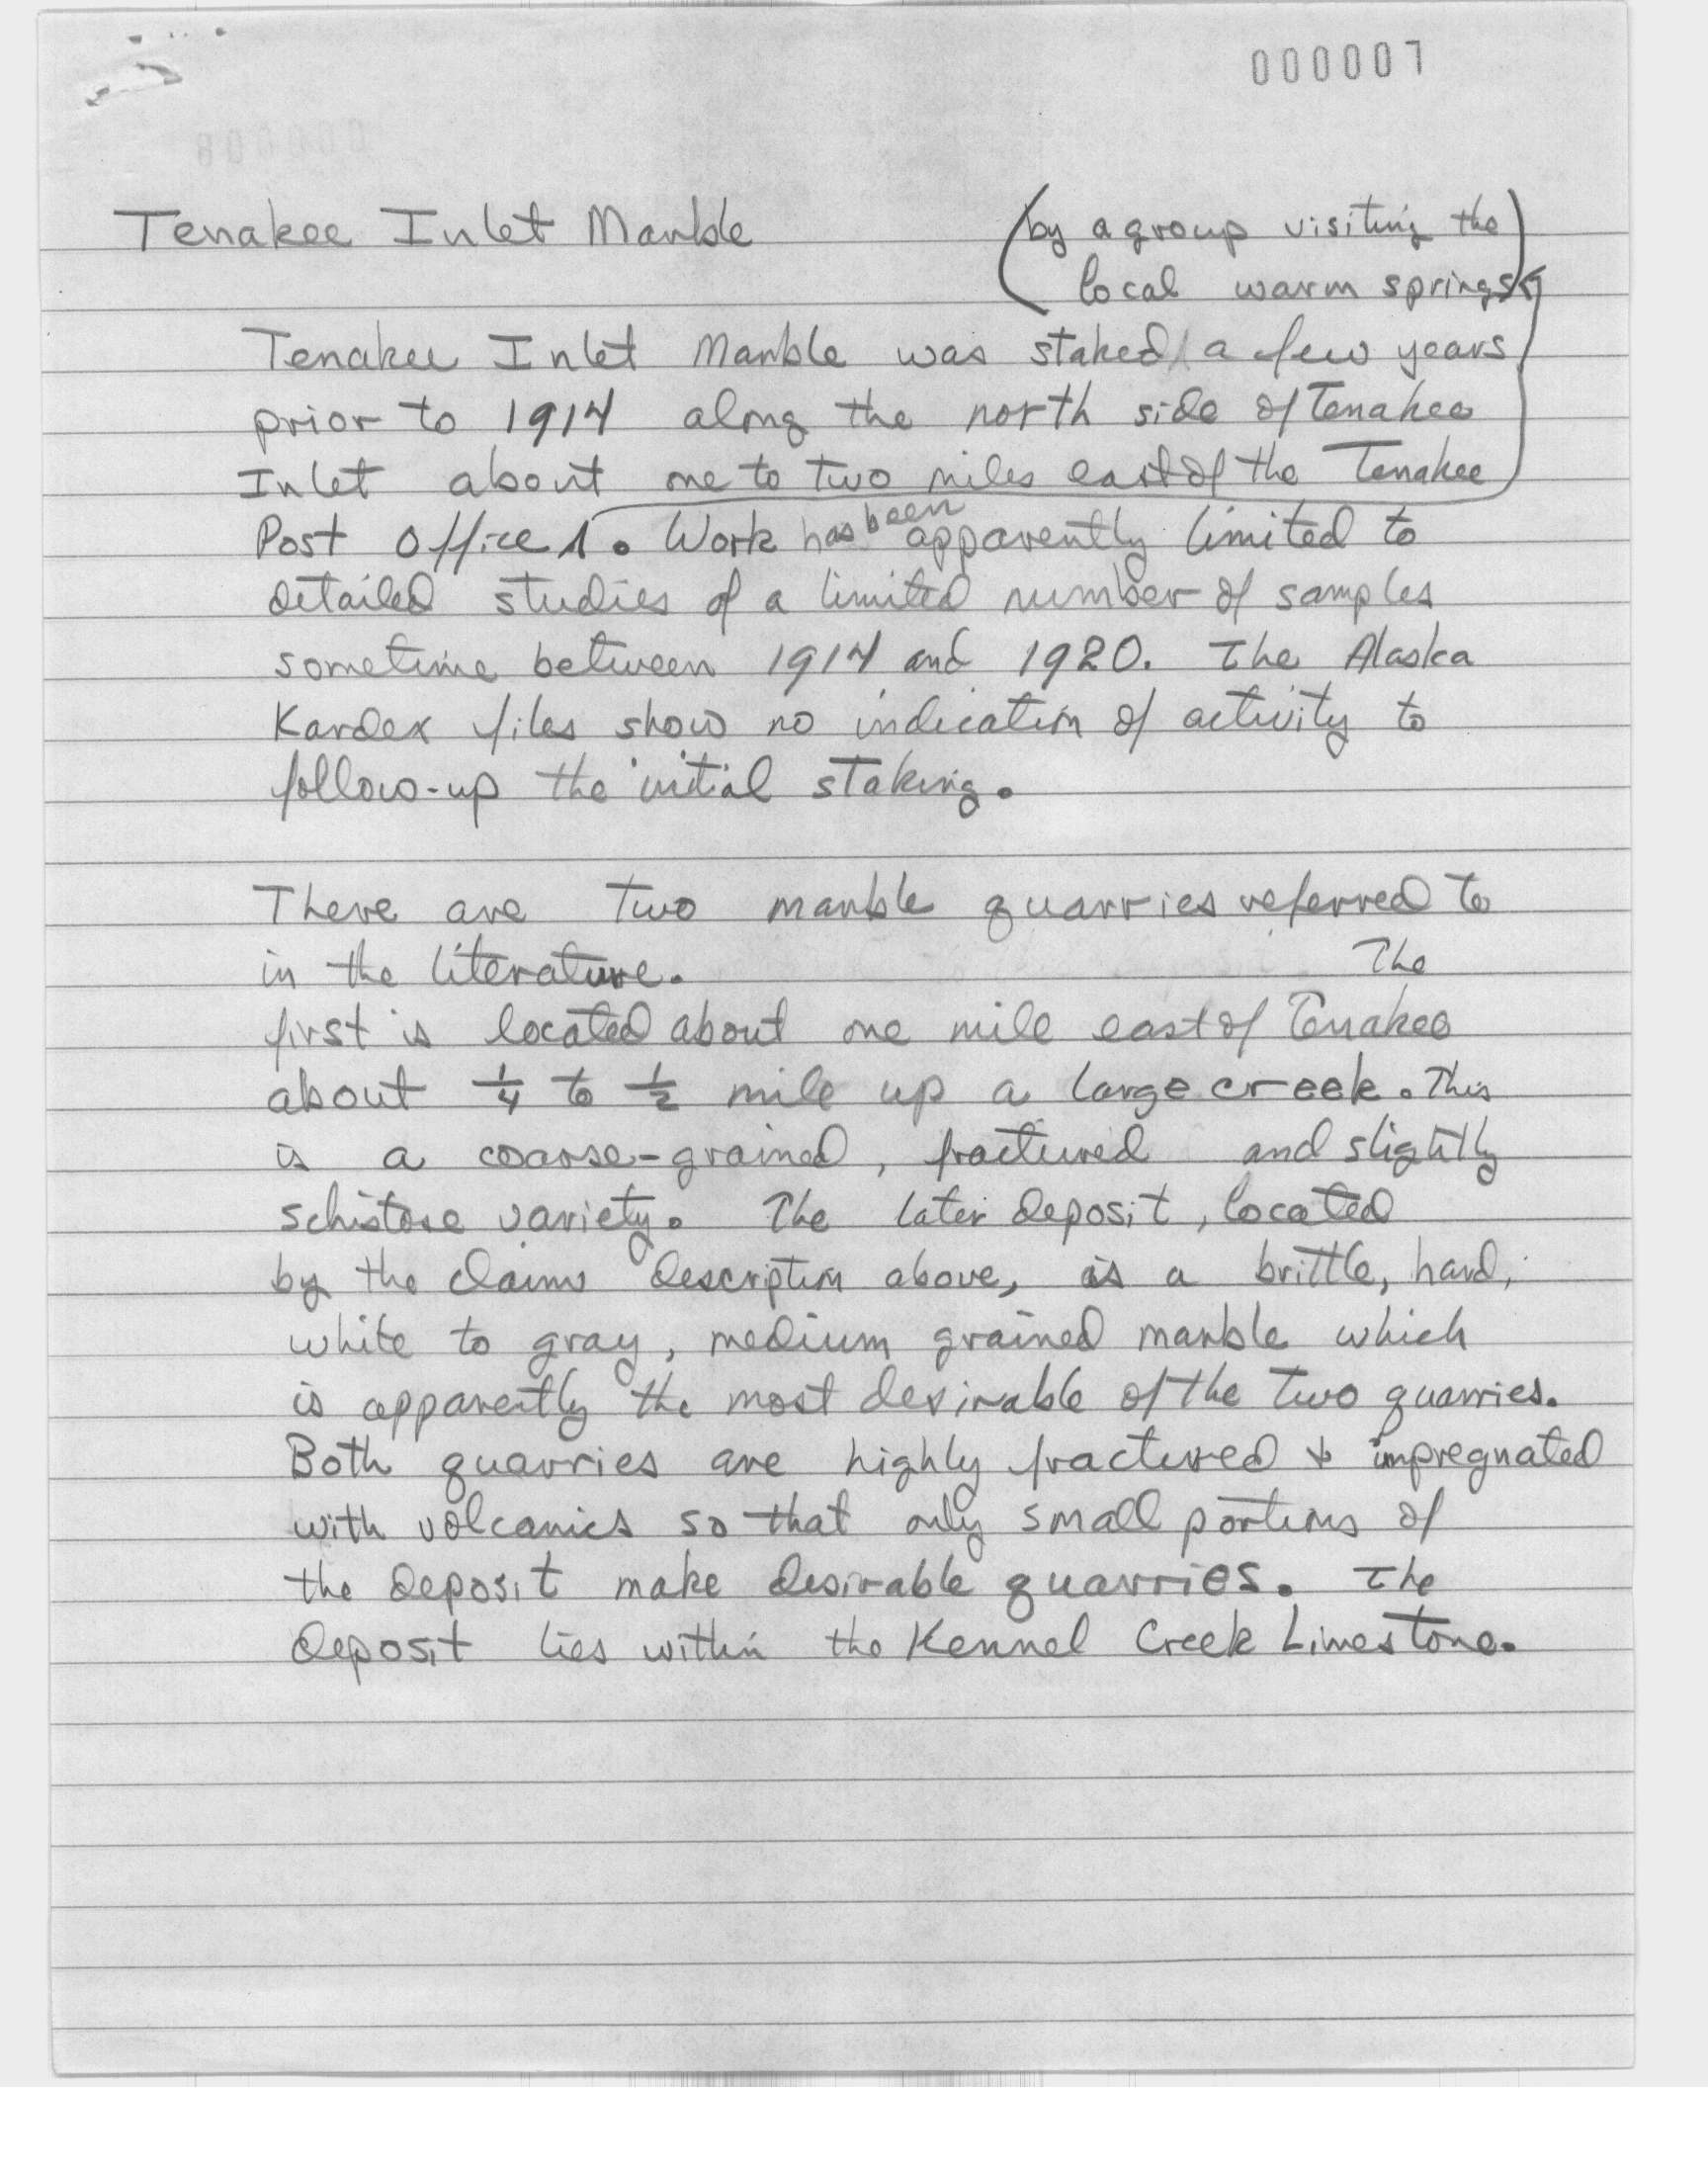 000007
Tenakee Inlet Marble
(by a group visiting the
local warm springs)
Tenakee Inlet Marble was staked a few years
prior to 1914 along the north side of Tenakee
Inlet about one to two miles east of the Tenakee
Post Office. Work has been apparently limited to
detailed studies of a limited number of samples
sometime between 1914 and 1920. The Alaska
Kardex files show no indication of activity to
follow-up the initial staking.
There are two marble quarries referred to
in the literature. The
first is located about one mile east of Tenakee
about 1/4 to 1/2 mile up a large creek. This
is a coarse-grained, fractured and slightly
schistose variety. The later deposit, located
by the claims description above, is a brittle, hard,
white to gray, medium grained marble which
is apparently the most desirable of the two quarries.
Both quarries are highly fractured & impregnated
with volcanics so that only small portions of
the deposit make desirable quarries. The
deposit lies within the Kennel Creek Limestone.